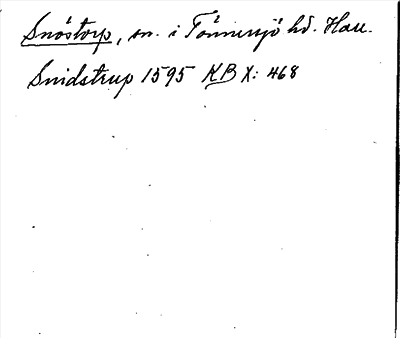 Snöstorp, sn. i Tönnersjö hd. Hall.
Snidstrup 1595 KB X: 468